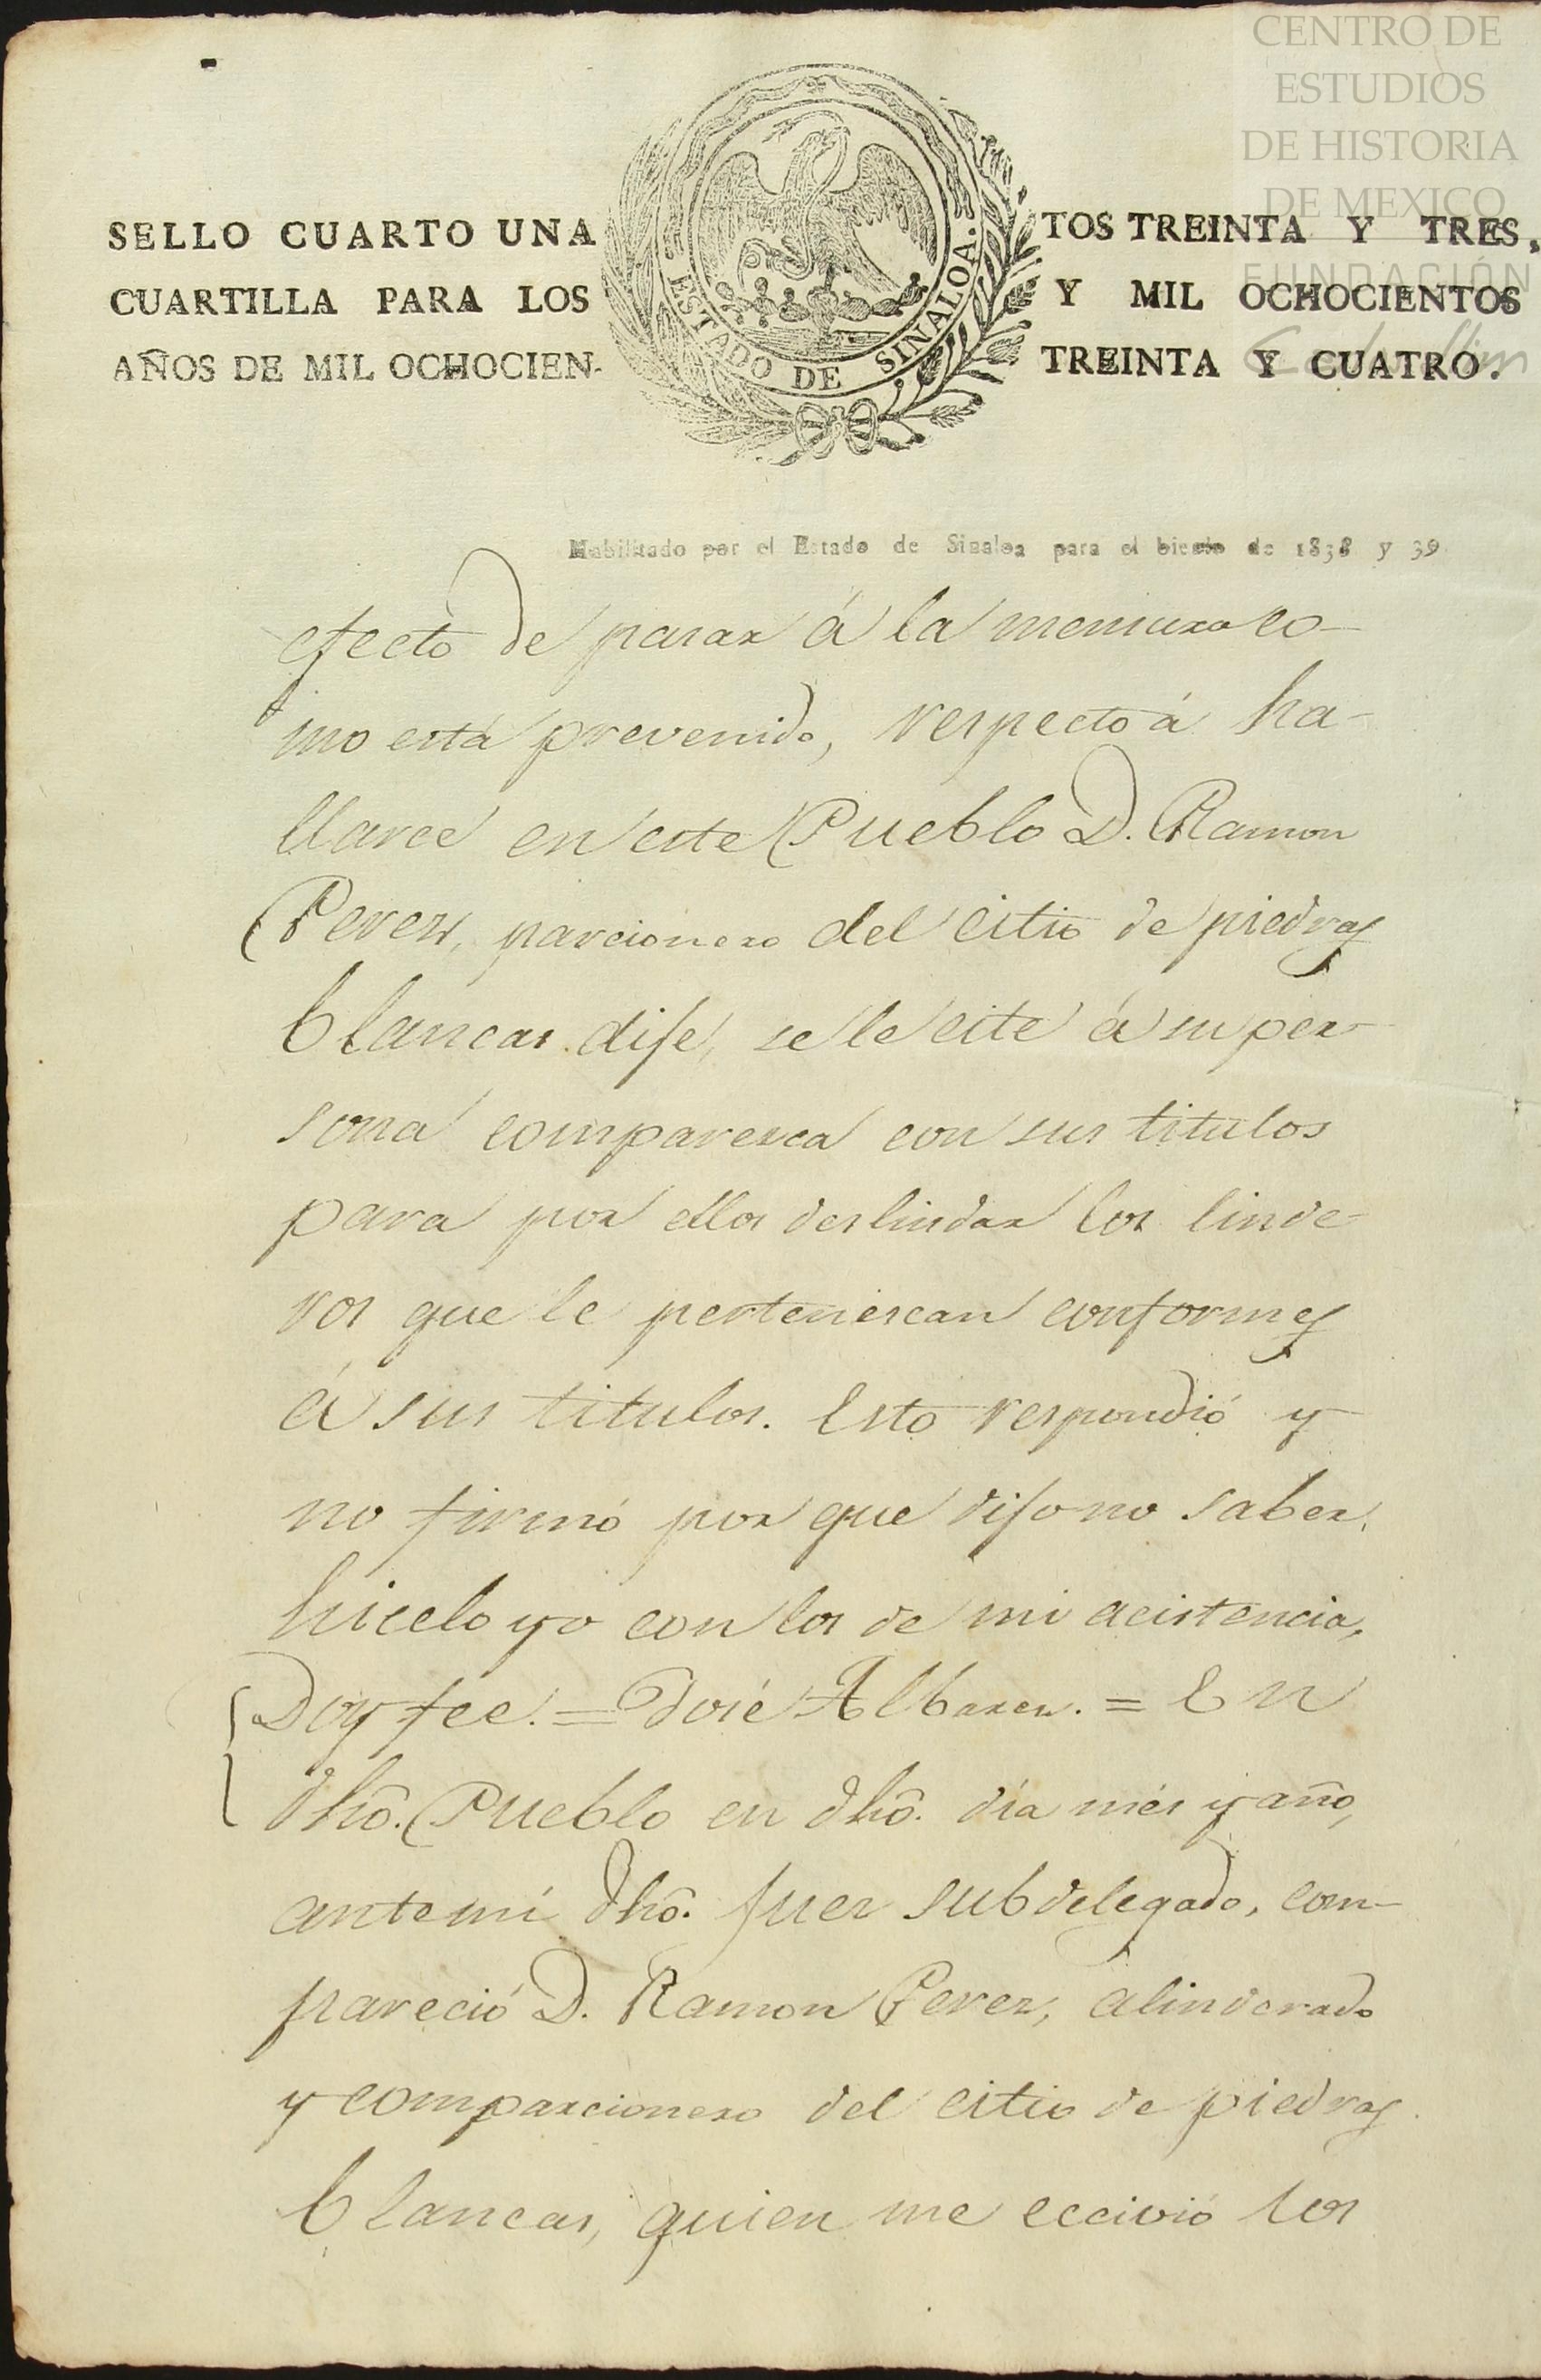 CENTRO DE
ESTUDIOS
DE HISTORIA
DE MEXICO
FUNDACIÓN
SELLO CUARTO UNA
CUARTILLA PARA LOS
AÑOS DE MIL OCHOCIEN-
ESTADO DE SINALOA.
TOS TREINTA Y TRES,
Y MIL OCHOCIENTOS
TREINTA Y CUATRO.
Habilitado por el Estado de Sinaloa para el bienio de 1838 y 39
efecto de pasar á la mensura co-
mo está prevenido, respecto á ha-
llarce en este Pueblo D. Ramon
Perez, parcionero del citio de piedras
blancas dije, se le cite á su per-
sona comparesca con sus titulos
para por ellos deslindar los linde-
ros que le pertenescan conformes
á sus titulos. Esto respondió y
no firmó por que dijo no saber,
hicelo yo con los de mi acistencia,
Doy fee. = José Albarez. = En
dhô. Pueblo en dhô. día més y año,
ante mí dhô. Juez subdelegado, com-
pareció D. Ramon Perez, alinderado
y comparcionero del citio de piedras
blancas, quien me eccivió los